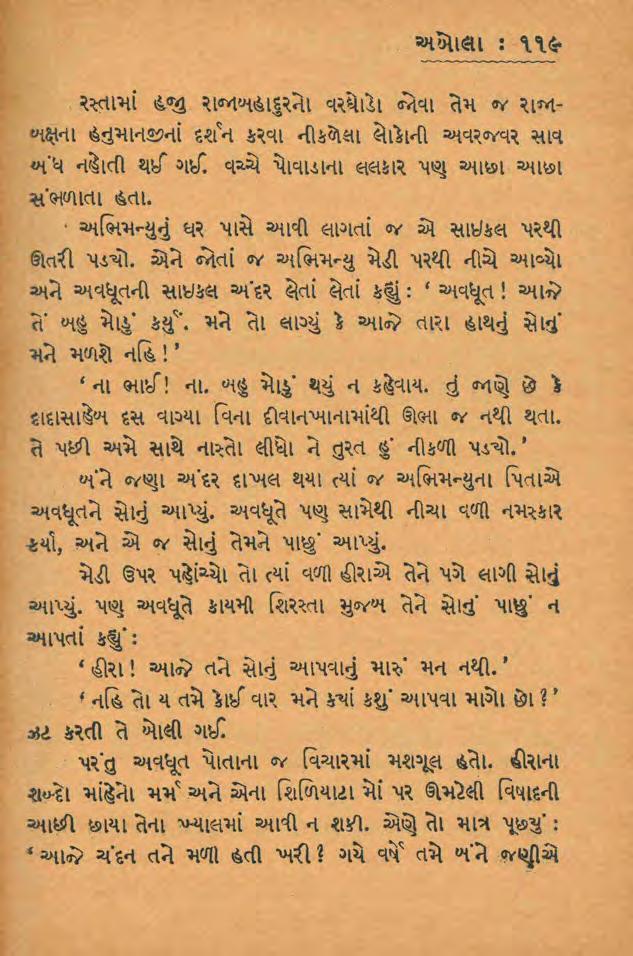 અબોલા : ૧૧૯
રસ્તામાં હજી રાજાબહાદુરનો વરઘોડો જોવા તેમ જ રાજા-
બક્ષના હનુમાનજીનાં દર્શન કરવા નીકળેલા લોકોની અવરજવર સાવ
બંધ નહોતી થઈ ગઈ. વચ્ચે પોવાડાના લલકાર પણ આછા આછા
સંભળાતા હતા.
અભિમન્યુનું ઘર પાસે આવી લાગતાં જ એ સાઇકલ પરથી
ઊતરી પડ્યો. એને જોતાં જ અભિમન્યુ મેડી પરથી નીચે આવ્યો
અને અવધૂતની સાઇકલ અંદર લેતાં લેતાં કહ્યું : ‘ અવધૂત ! આજે
તેં બહુ મોડું કર્યું. મને તો લાગ્યું કે આજે તારા હાથનું સોનું
મને મળશે નહિ ! ’
‘ ના ભાઈ ! ના. બહુ મોડું થયું ન કહેવાય. તું જાણે છે કે
દાદાસાહેબ દસ વાગ્યા વિના દીવાનખાનામાંથી ઊભા જ નથી થતા.
તે પછી અમે સાથે નાસ્તો લીધો ને તુરત હું નીકળી પડ્યો. ’
બંને જણા અંદર દાખલ થયા ત્યાં જ અભિમન્યુના પિતાએ
અવધૂતને સોનું આપ્યું. અવધૂતે પણ સામેથી નીચા વળી નમસ્કાર
કર્યા, અને એ જ સોનું તેમને પાછું આપ્યું.
મેડી ઉપર પહોંચ્યો તો ત્યાં વળી હીરાએ તેને પગે લાગી સોનું
આપ્યું. પણ અવધૂતે કાયમી શિરસ્તા મુજબ તેને સોનું પાછું ન
આપતાં કહ્યું :
‘ હીરા ! આજે તને સોનું આપવાનું મારું મન નથી. ’
‘ નહિ તો ય તમે કોઈ વાર મને ક્યાં કશું આપવા માગો છો ? ’
ઝટ કરતી તે બોલી ગઈ.
પરંતુ અવધૂત પોતાના જ વિચારમાં મશગૂલ હતો. હીરાના
શબ્દો માંહેનો મર્મ અને એના શિળિયાટા મોં પર ઊમટેલી વિષાદની
આછી છાયા તેના ખ્યાલમાં આવી ન શકી. એણે તો માત્ર પૂછ્યું :
‘ આજે ચંદન તને મળી હતી ખરી ? ગયે વર્ષે તમે બંને જણીએ